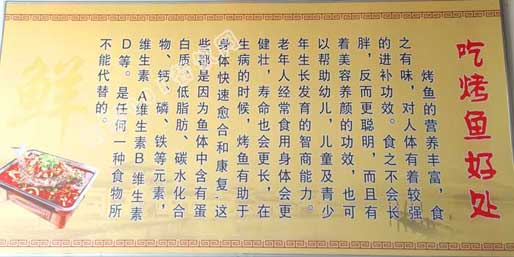 吃烤鱼好处
烤鱼的营养丰富，食
之有味，对人体有着较强
的进补功效。食之不会长
胖，反而更聪明，而且有
着美容养颜的功效，也可
以帮助幼儿，儿童及青少
年生长发育的智商能力。
老年人经常食用身体会更
健壮，寿命也会更长，在
生病的时候，烤鱼有助于
身体快速愈合和康复·这
些都是因为鱼体中含有蛋
白质、低脂肪、碳水化合
物、钙、磷、铁等元素，
维生素A维生素B维生素
D等。是任何一种食物所
不能代替的。
鲜